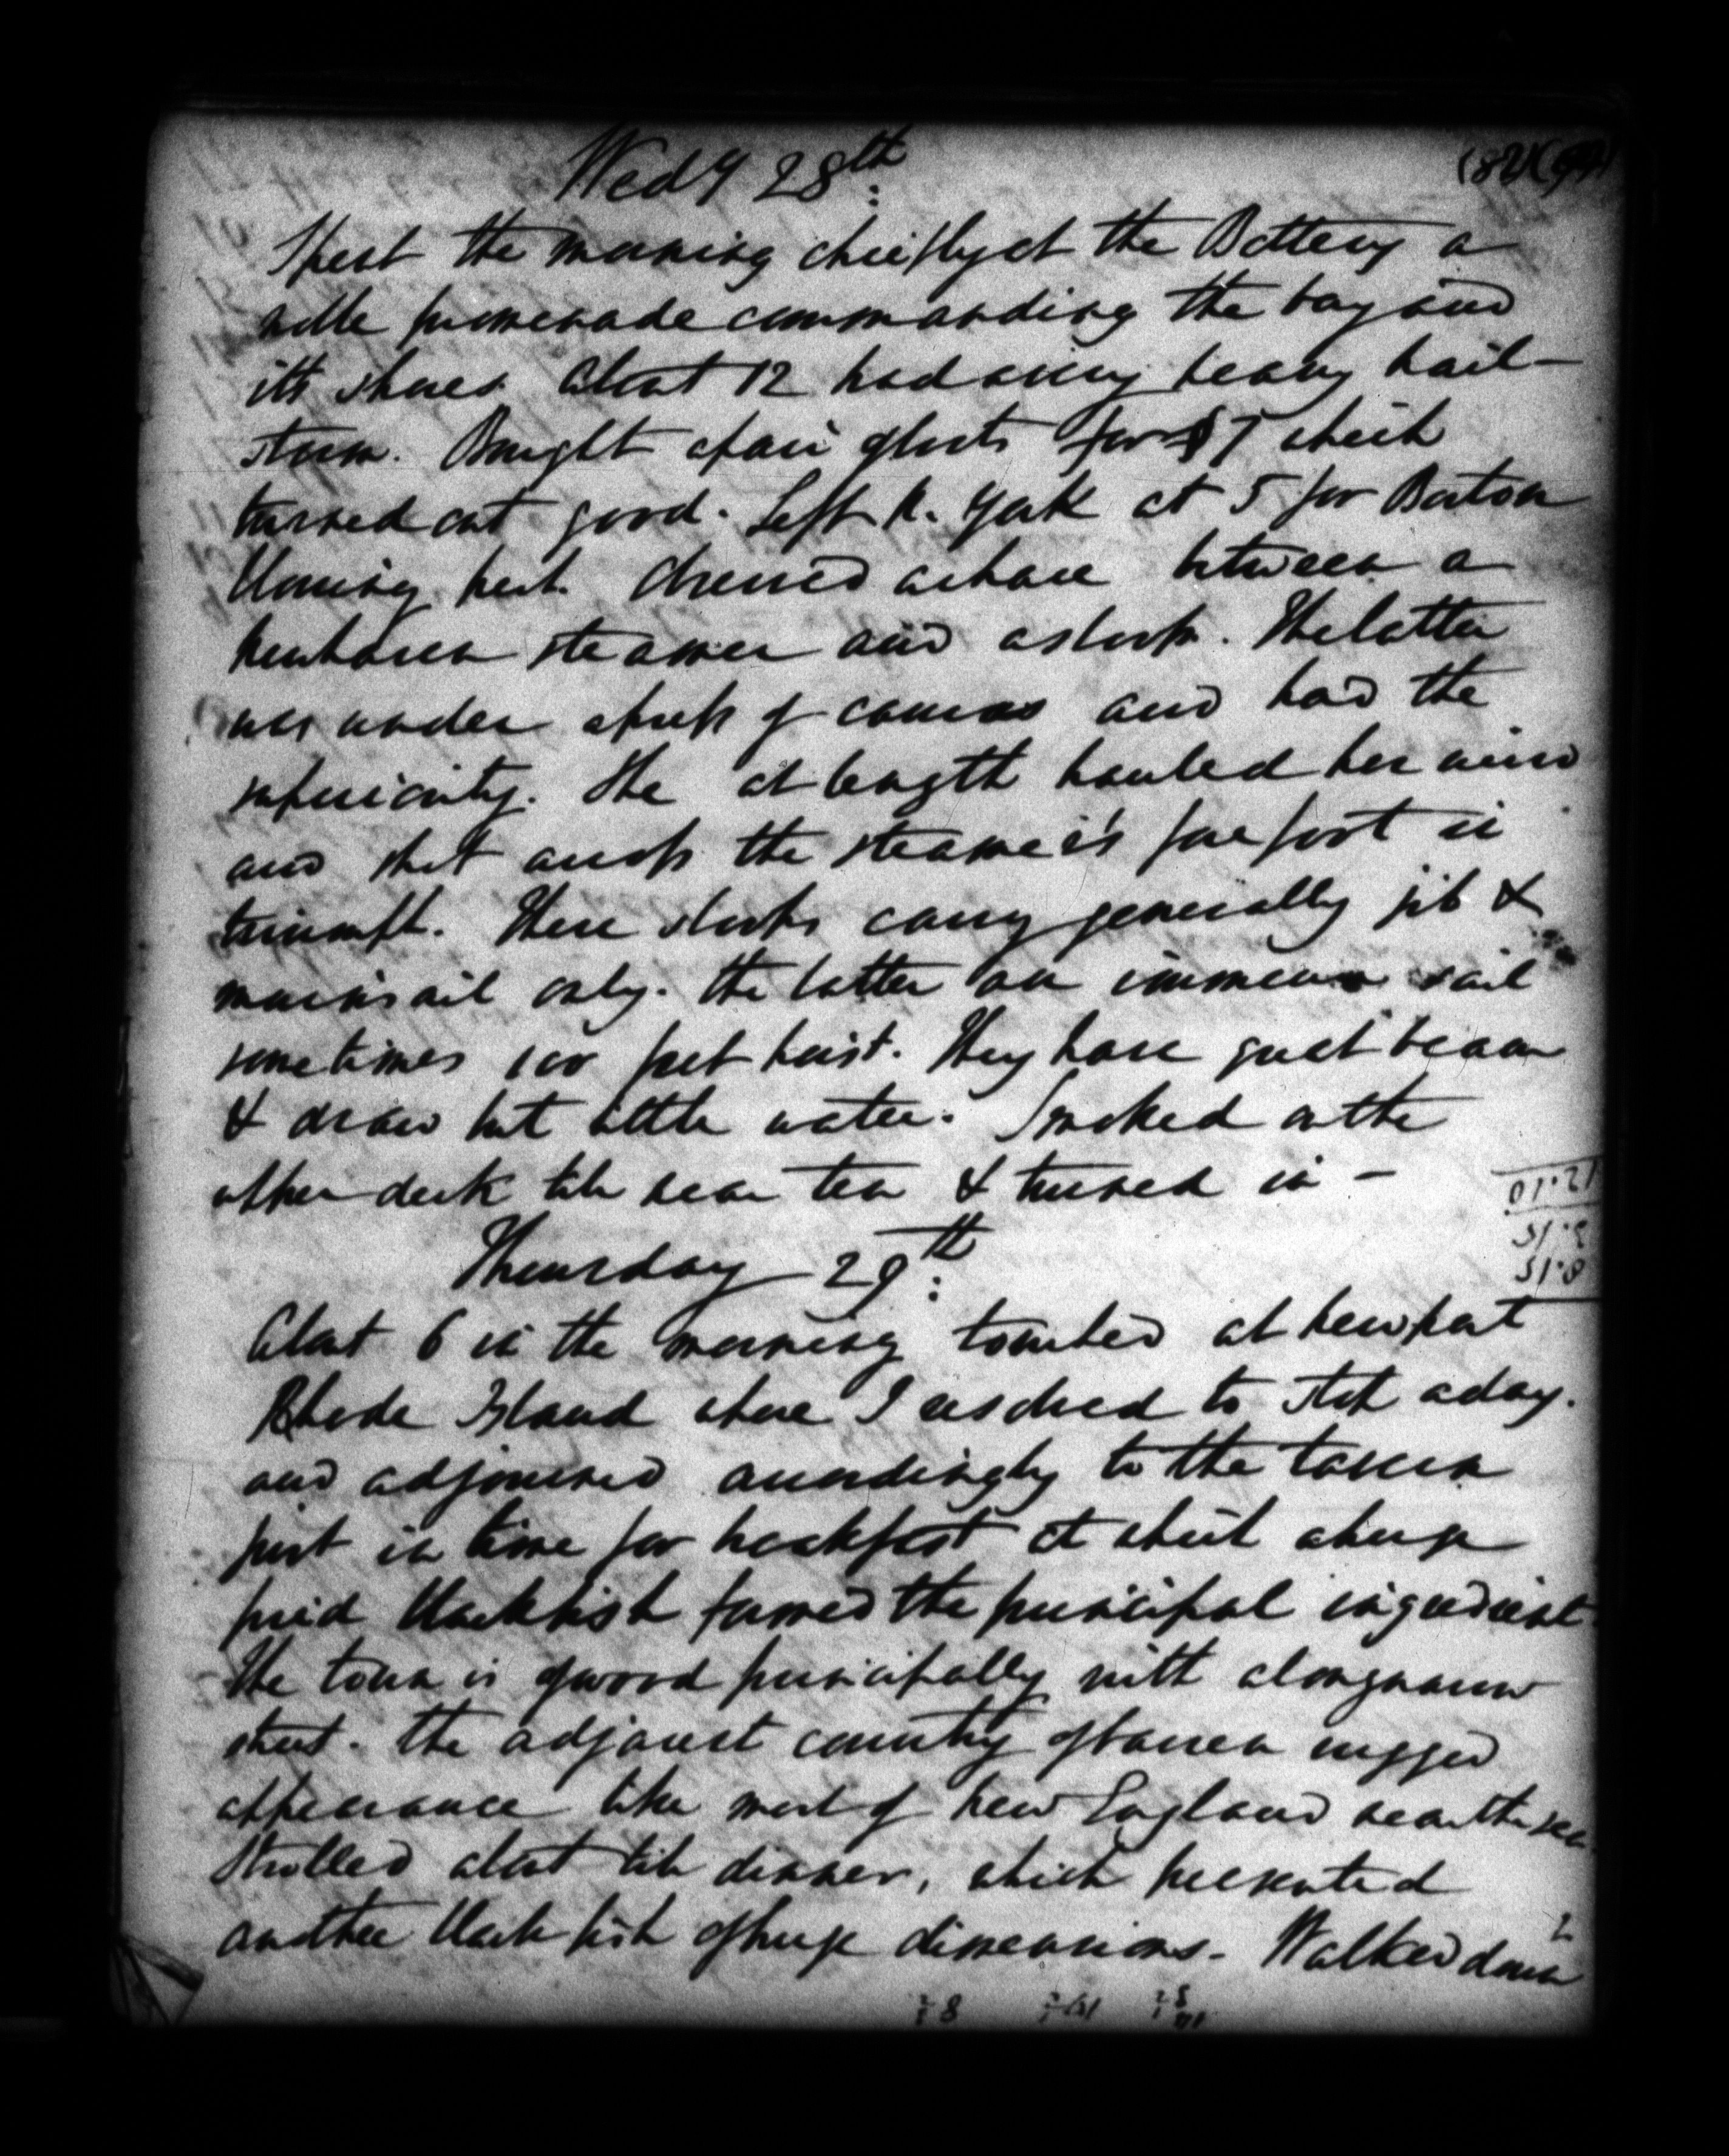 Wedy 28th
Spent the morning chiefly at the Battery a
noble promenade commanding the bay and
its shores. About 12 had a very heavy hail-
storm. Bought a pair of boots for $7 which
turned out good. Left N. York at 5 for Boston
blowing fresh. Observed a chase between a
Newhaven steamer and a sloop. The latter
was under a press of canvas and had the
superiority. She at length hauled her wind
and shot across the steamer's forefoot in
triumph. These sloops carry generally jib &
mainsail only. the latter an immense sail
sometimes 100 feet hoist. They have great beam
& draw but little water. Smoked on the
upper deck till near ten & turned in -
Thursday 29th
About 6 in the morning touched at Newport
Rhode Island where I resolved to stop a day.
and adjourned accordingly to the tavern
just in time for breakfast at which a huge
fried blackfish formed the principal ingredient.
The town is of wood principally with a long narrow
street. The adjacent country of barren rugged
appearance like most of New England near the sea.
Strolled about till dinner, which presented
another black fish of huge dimensions. Walked down